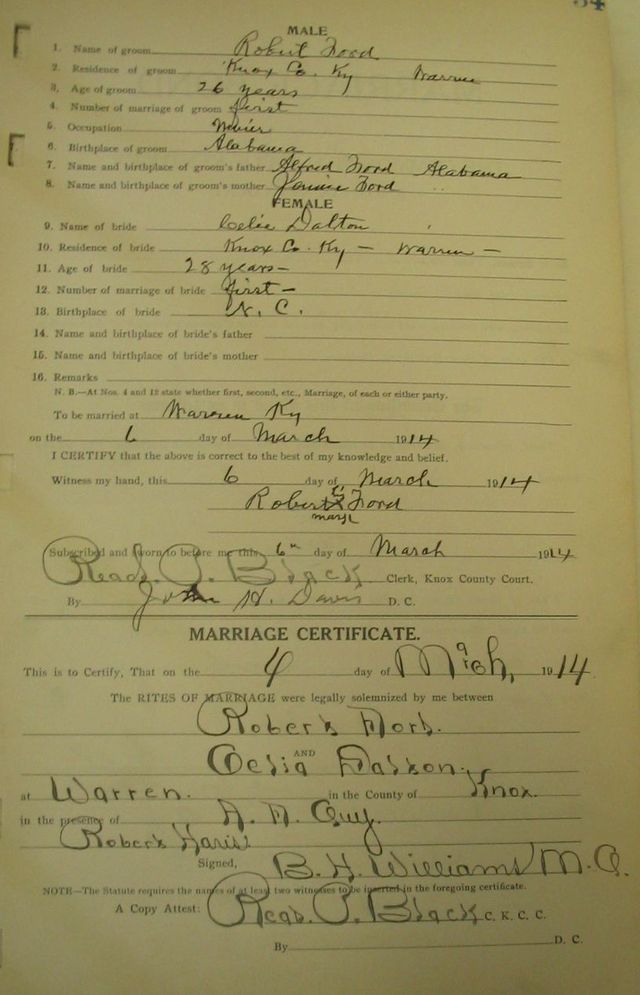 34
MALE
1. Name of groom Robert Ford
2. Residence of groom Knox Co. Ky Warren
3. Age of groom 26 years
4. Number of marriage of groom first
5. Occupation Minier
6. Birthplace of groom Alabama
7. Name and birthplace of groom's father Alfred Ford Alabama
8. Name and birthplace of groom's mother Jennie Ford "
FEMALE
9. Name of bride Celia Dalton
10. Residence of bride Knox Co. Ky — Warren —
11. Age of bride 28 years —
12. Number of marriage of bride first —
13. Birthplace of bride N. C.
14. Name and birthplace of bride's father
15. Name and birthplace of bride's mother
16. Remarks
N. B.—At Nos. 4 and 12 state whether first, second, etc., Marriage, of each or either party.
To be married at Warren Ky
on the 6 day of March 1914
I CERTIFY that the above is correct to the best of my knowledge and belief.
Witness my hand, this 6 day of March 1914
Robert X Ford
mark
Subscribed and sworn to before me this 6" day of March 1914
Read. P. Black Clerk, Knox County Court.
By John H. Davis D. C.
MARRIAGE CERTIFICATE.
This is to Certify, That on the 4 day of Mach, 1914
The RITES OF MARRIAGE were legally solemnized by me between
Robert Ford.
AND
Celia Dalton.
at Warren. in the County of Knox.
in the presence of A. A. Guy.
Robert
Signed, B. H. Williams M. G.
NOTE—The Statute requires the names of at least two witnesses to be inserted in the foregoing certificate.
A Copy Attest: Read. P. Black C. K. C. C.
By D. C.